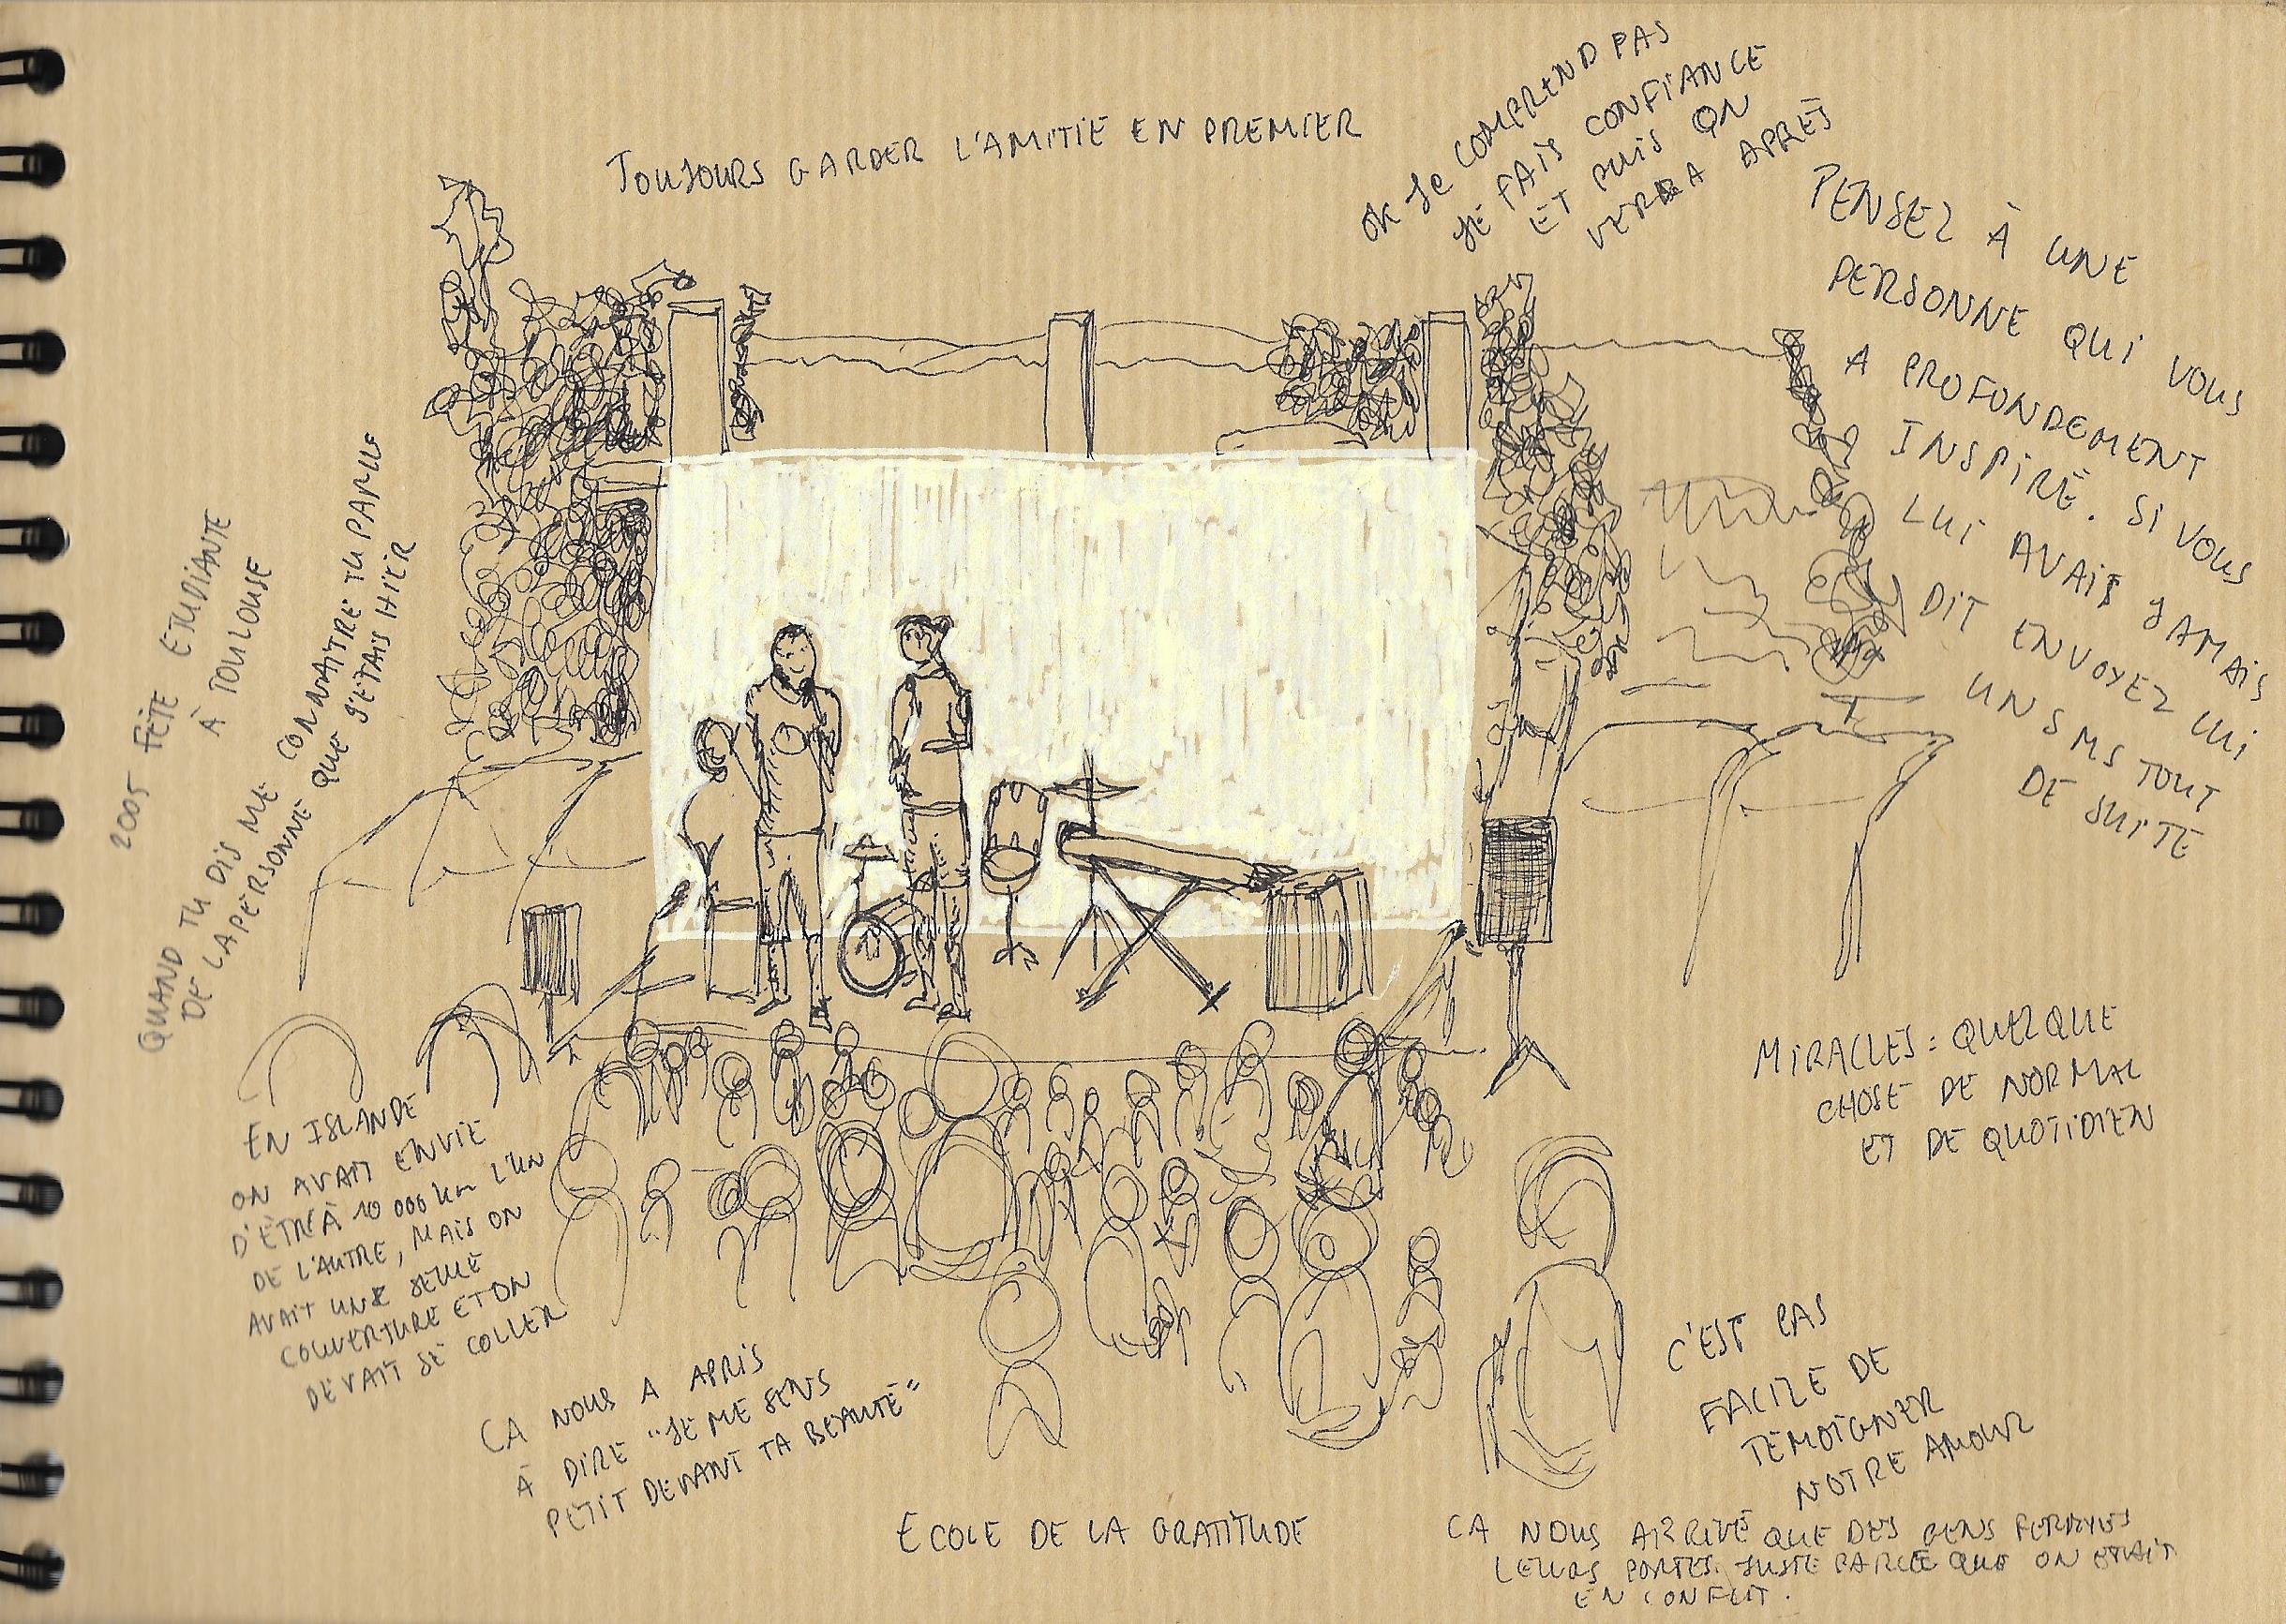 TOUJOURS GARDER L'AMITIE EN PREMIER
OK JE COMPREND PAS
JE FAIS CONFIANCE
ET PUIS ON
VERRA APRÈS
PENSEZ À UNE
PERSONNE QUI VOUS
A PROFONDEMENT
INSPIRÉ. SI VOUS
LUI AVAIS JAMAIS
DIT ENVOYEZ LUI
UN SMS TOUT
DE SUITE
2005 FÊTE ETUDIANTE
À TOULOUSE
QUAND TU DIS ME CONNAITRE TU PARLE
DE LA PERSONNE QUE J'ÉTAIS HIER
EN ISLANDE
ON AVAIT ENVIE
D'ETRE À 10 000 km L'UN
DE L'AUTRE, MAIS ON
AVAIT UNE SEULE
COUVERTURE ET ON
DEVAIT SE COLLER
CA NOUS A APRIS
À DIRE "JE ME SENS
PETIT DEVANT TA BEAUTÉ"
ECOLE DE LA GRATITUDE
MIRACLES = QUELQUE
CHOSE DE NORMAL
ET DE QUOTIDIEN
C'EST PAS
FACILE DE
TÉMOIGNER
NOTRE AMOUR
CA NOUS ARRIVE QUE DES GENS
LEURS PORTES JUSTE PARCE QUE ON ETAIT
EN CONFLIT.